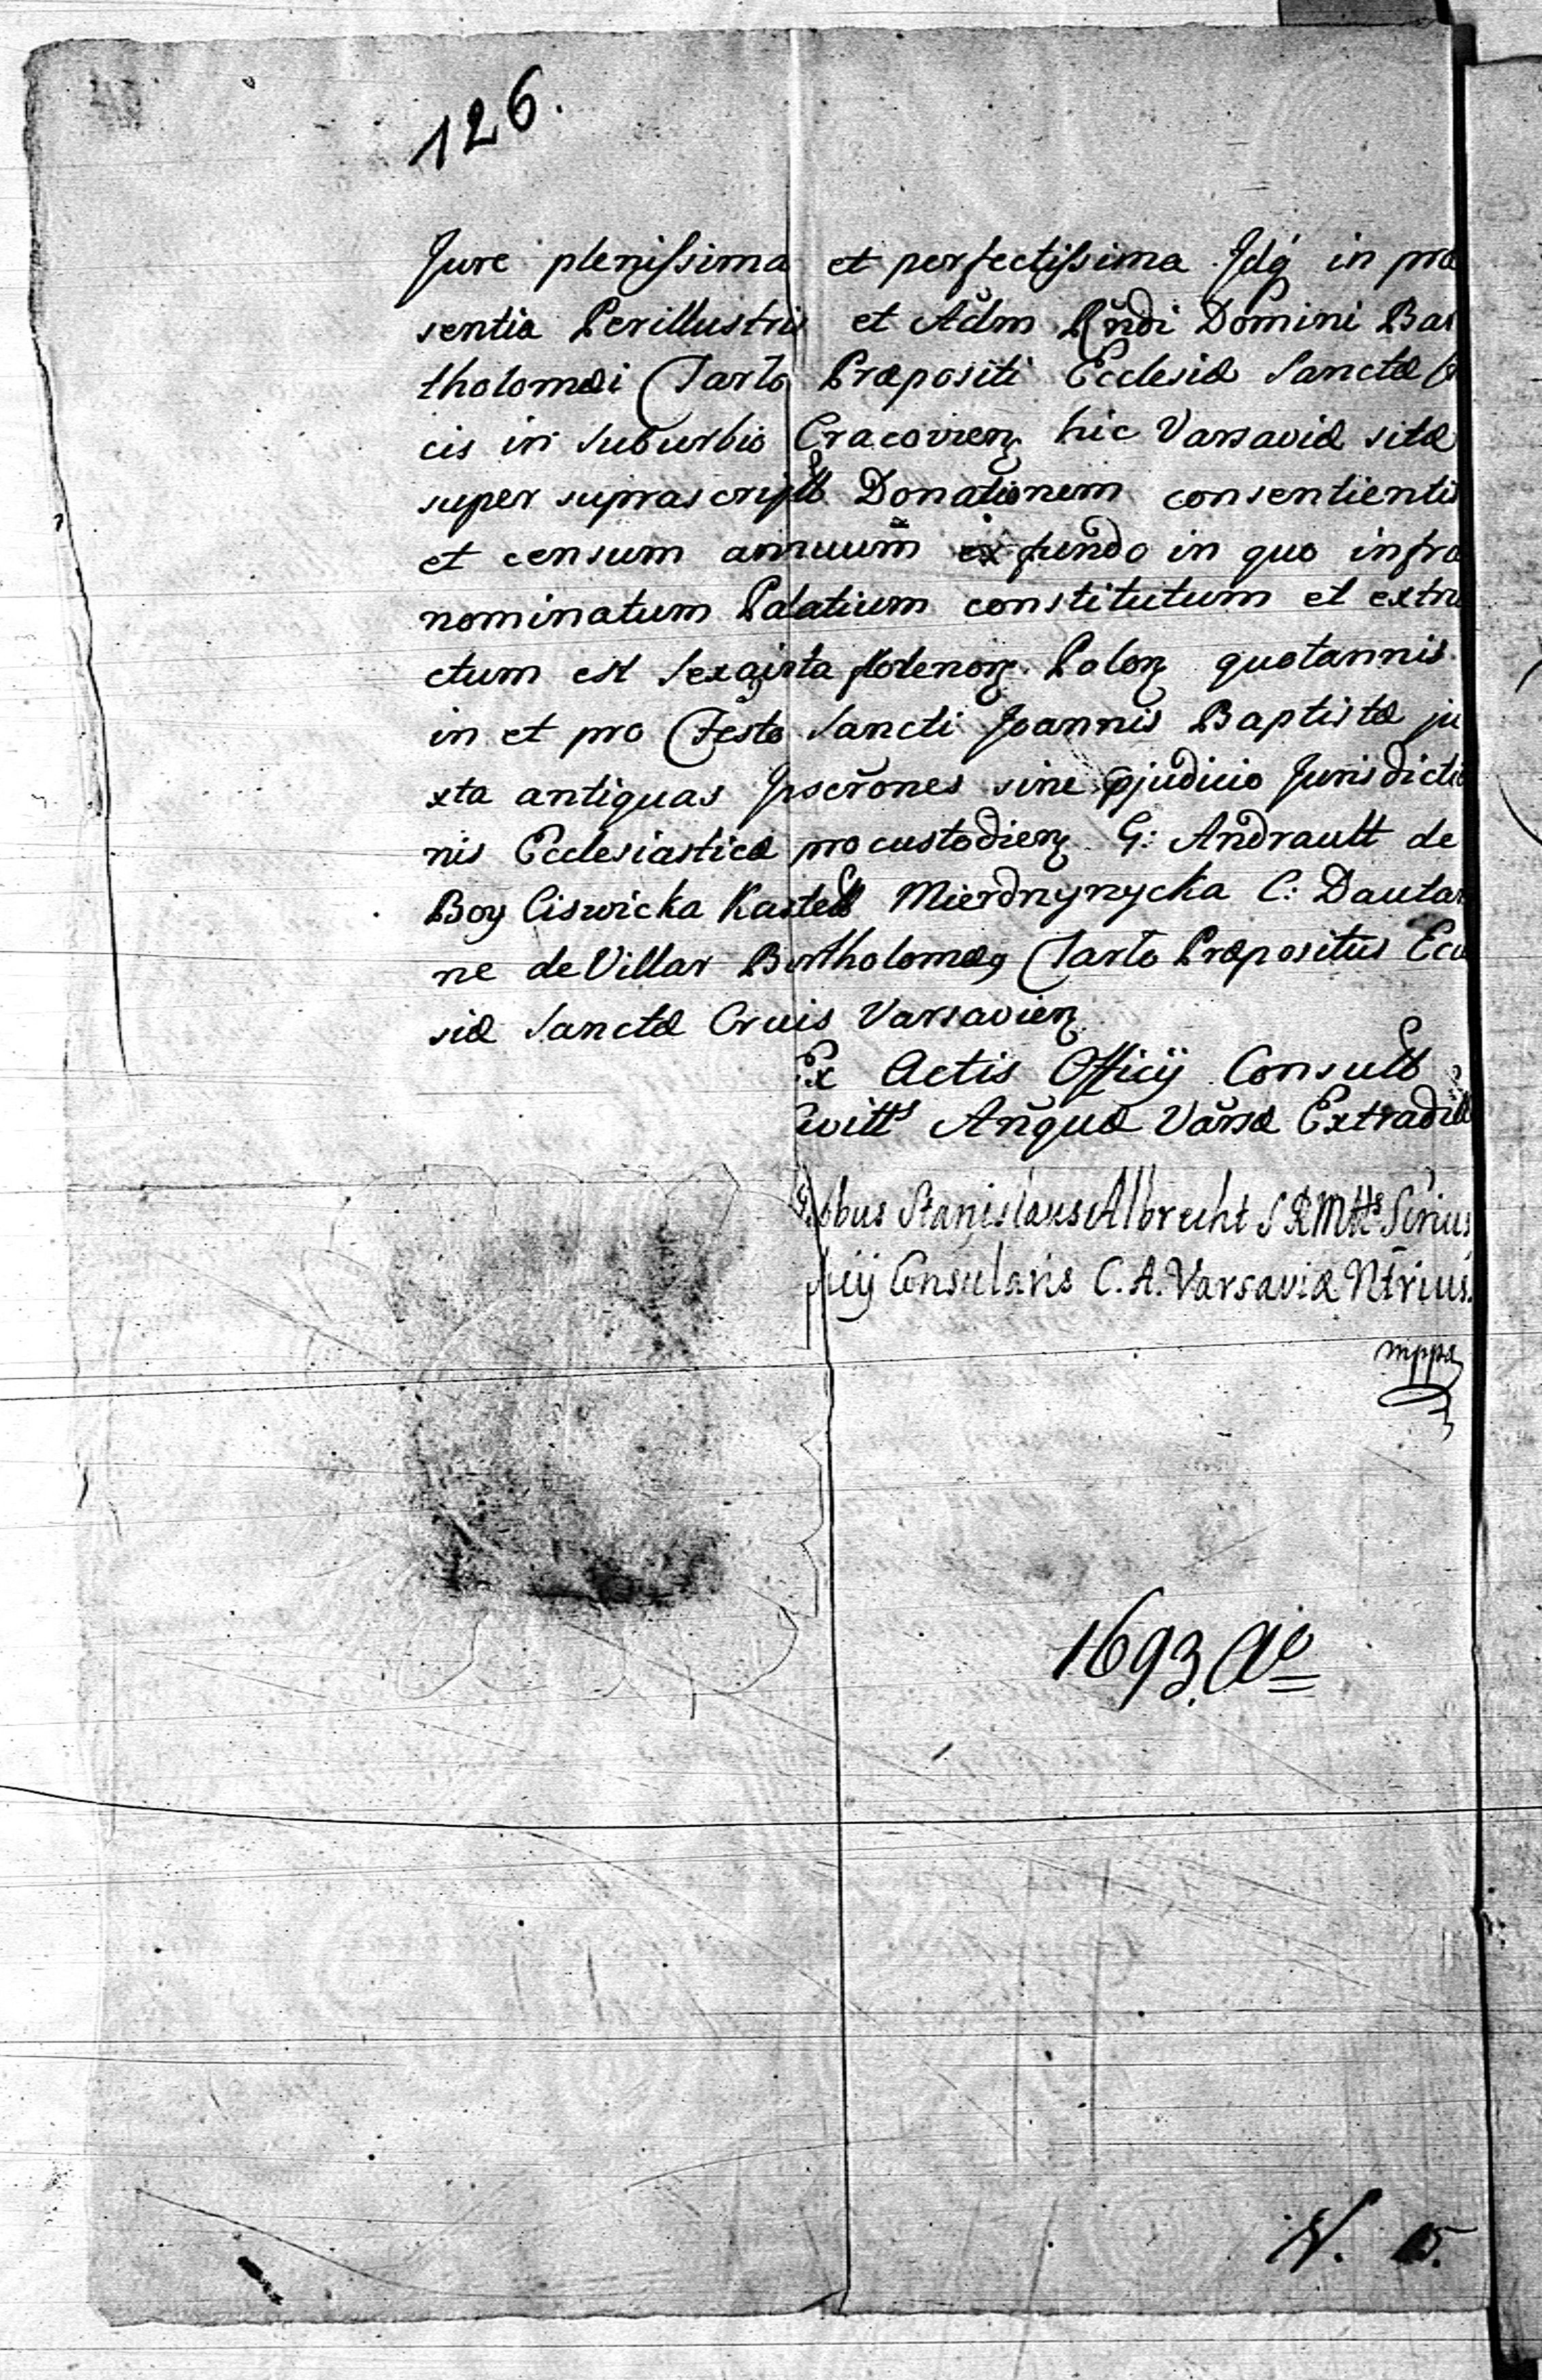 126.
Jure plenissima et perfectissima Jdq́ in præ
sentia Perillustris et Adm̃ Rñdi Domini Bar
tholomæi Tarlo Præpositi Ecclesiæ Sanctæ
cis in suburbio Cracovien hic Varsaviæ sitæ
super suprascriptã Donationem consentientis
et censum annuum ex fundo in quo infra
nominatum Palatium constitutum et extru
ctum est sexaginta florenorꝝ Polon quotannis
in et pro Festo Sancti Joannis Baptistæ ju
xta antiquas Jnscrõnes sine pjudicio Jurisdictio
nis Ecclesiasticæ procustodien G: Andrault de
Boy Ciswicka Kastell Mierdnynycka C: Dautar
ne de Villar Bartholomæꝰ Tarlo Præpositus Eccl
siæ Sanctæ Cruis Varsavien
Ex Actis Officij Consul
Civitts Añquæ Varsæ Extradit
obus Stanislaus Albrecht S R Mtts Srius
icij Consularis C. A. Varsaviæ Ntrius.
mppa
1693. Ao
N.